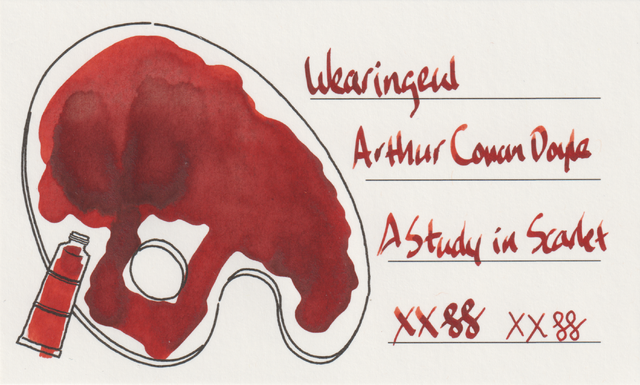 Wearingeul
Arthur Conan Doyle
A Study in Scarlet
XX88 XX88